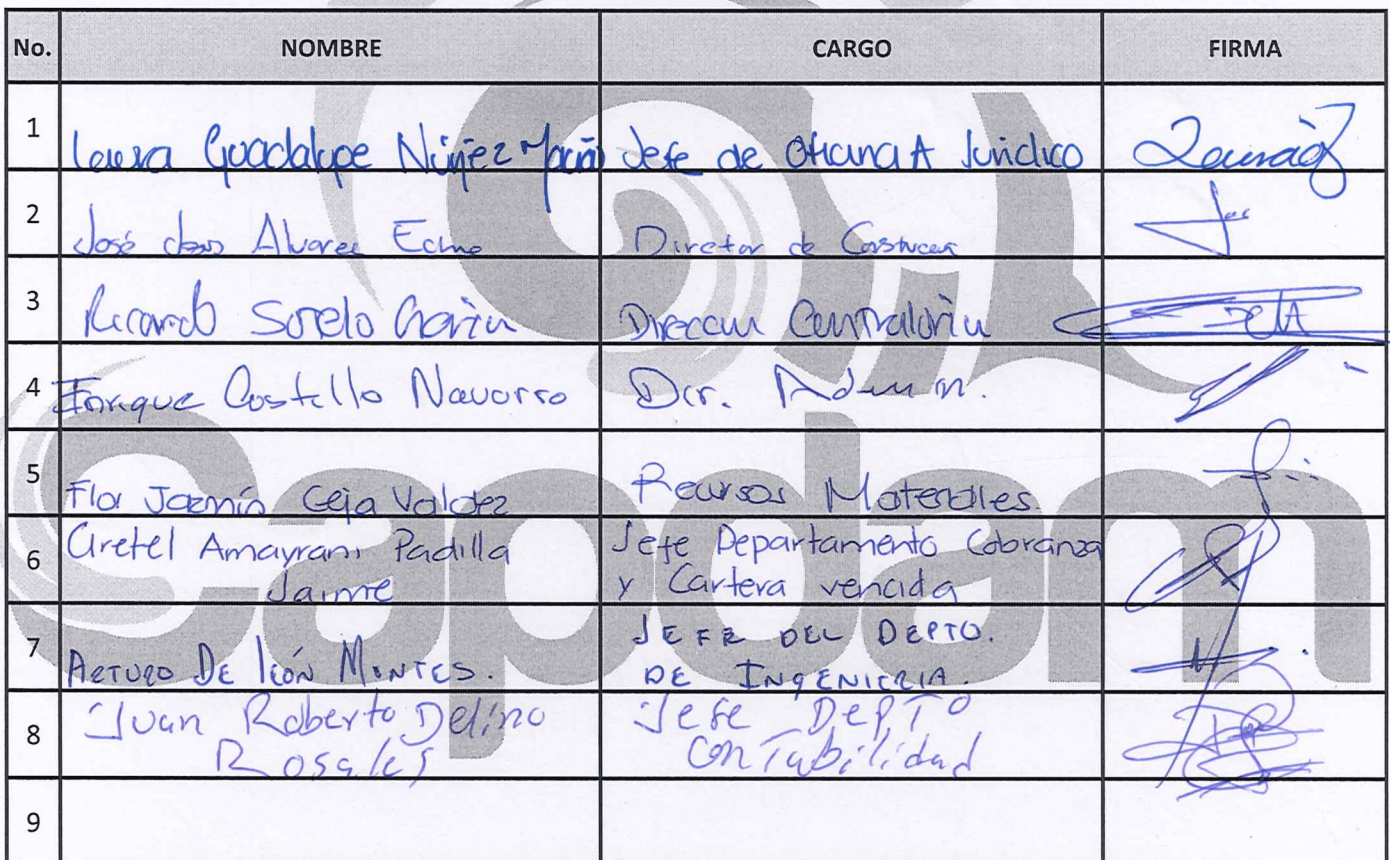 No. NOMBRE CARGO FIRMA
1 Laura Guadalupe Núñez Jefe de Oficina A Jurídico
2 José Alvarez Director de
3 Ricardo Sotelo Director Contraloría
4 Enrique Castillo Navarro Dir. Admin.
5 Flor Jazmín Ceja Valdez Recursos Materiales.
6 Gretel Amayrani Padilla Jaime Jefe Departamento Cobranza y Cartera vencida
7 ARTURO DE León MONTES. JEFE DEL DEPTO. DE INGENIERIA.
8 Juan Roberto Delino Rosales Jefe DEPTO Contabilidad
9
Capdam